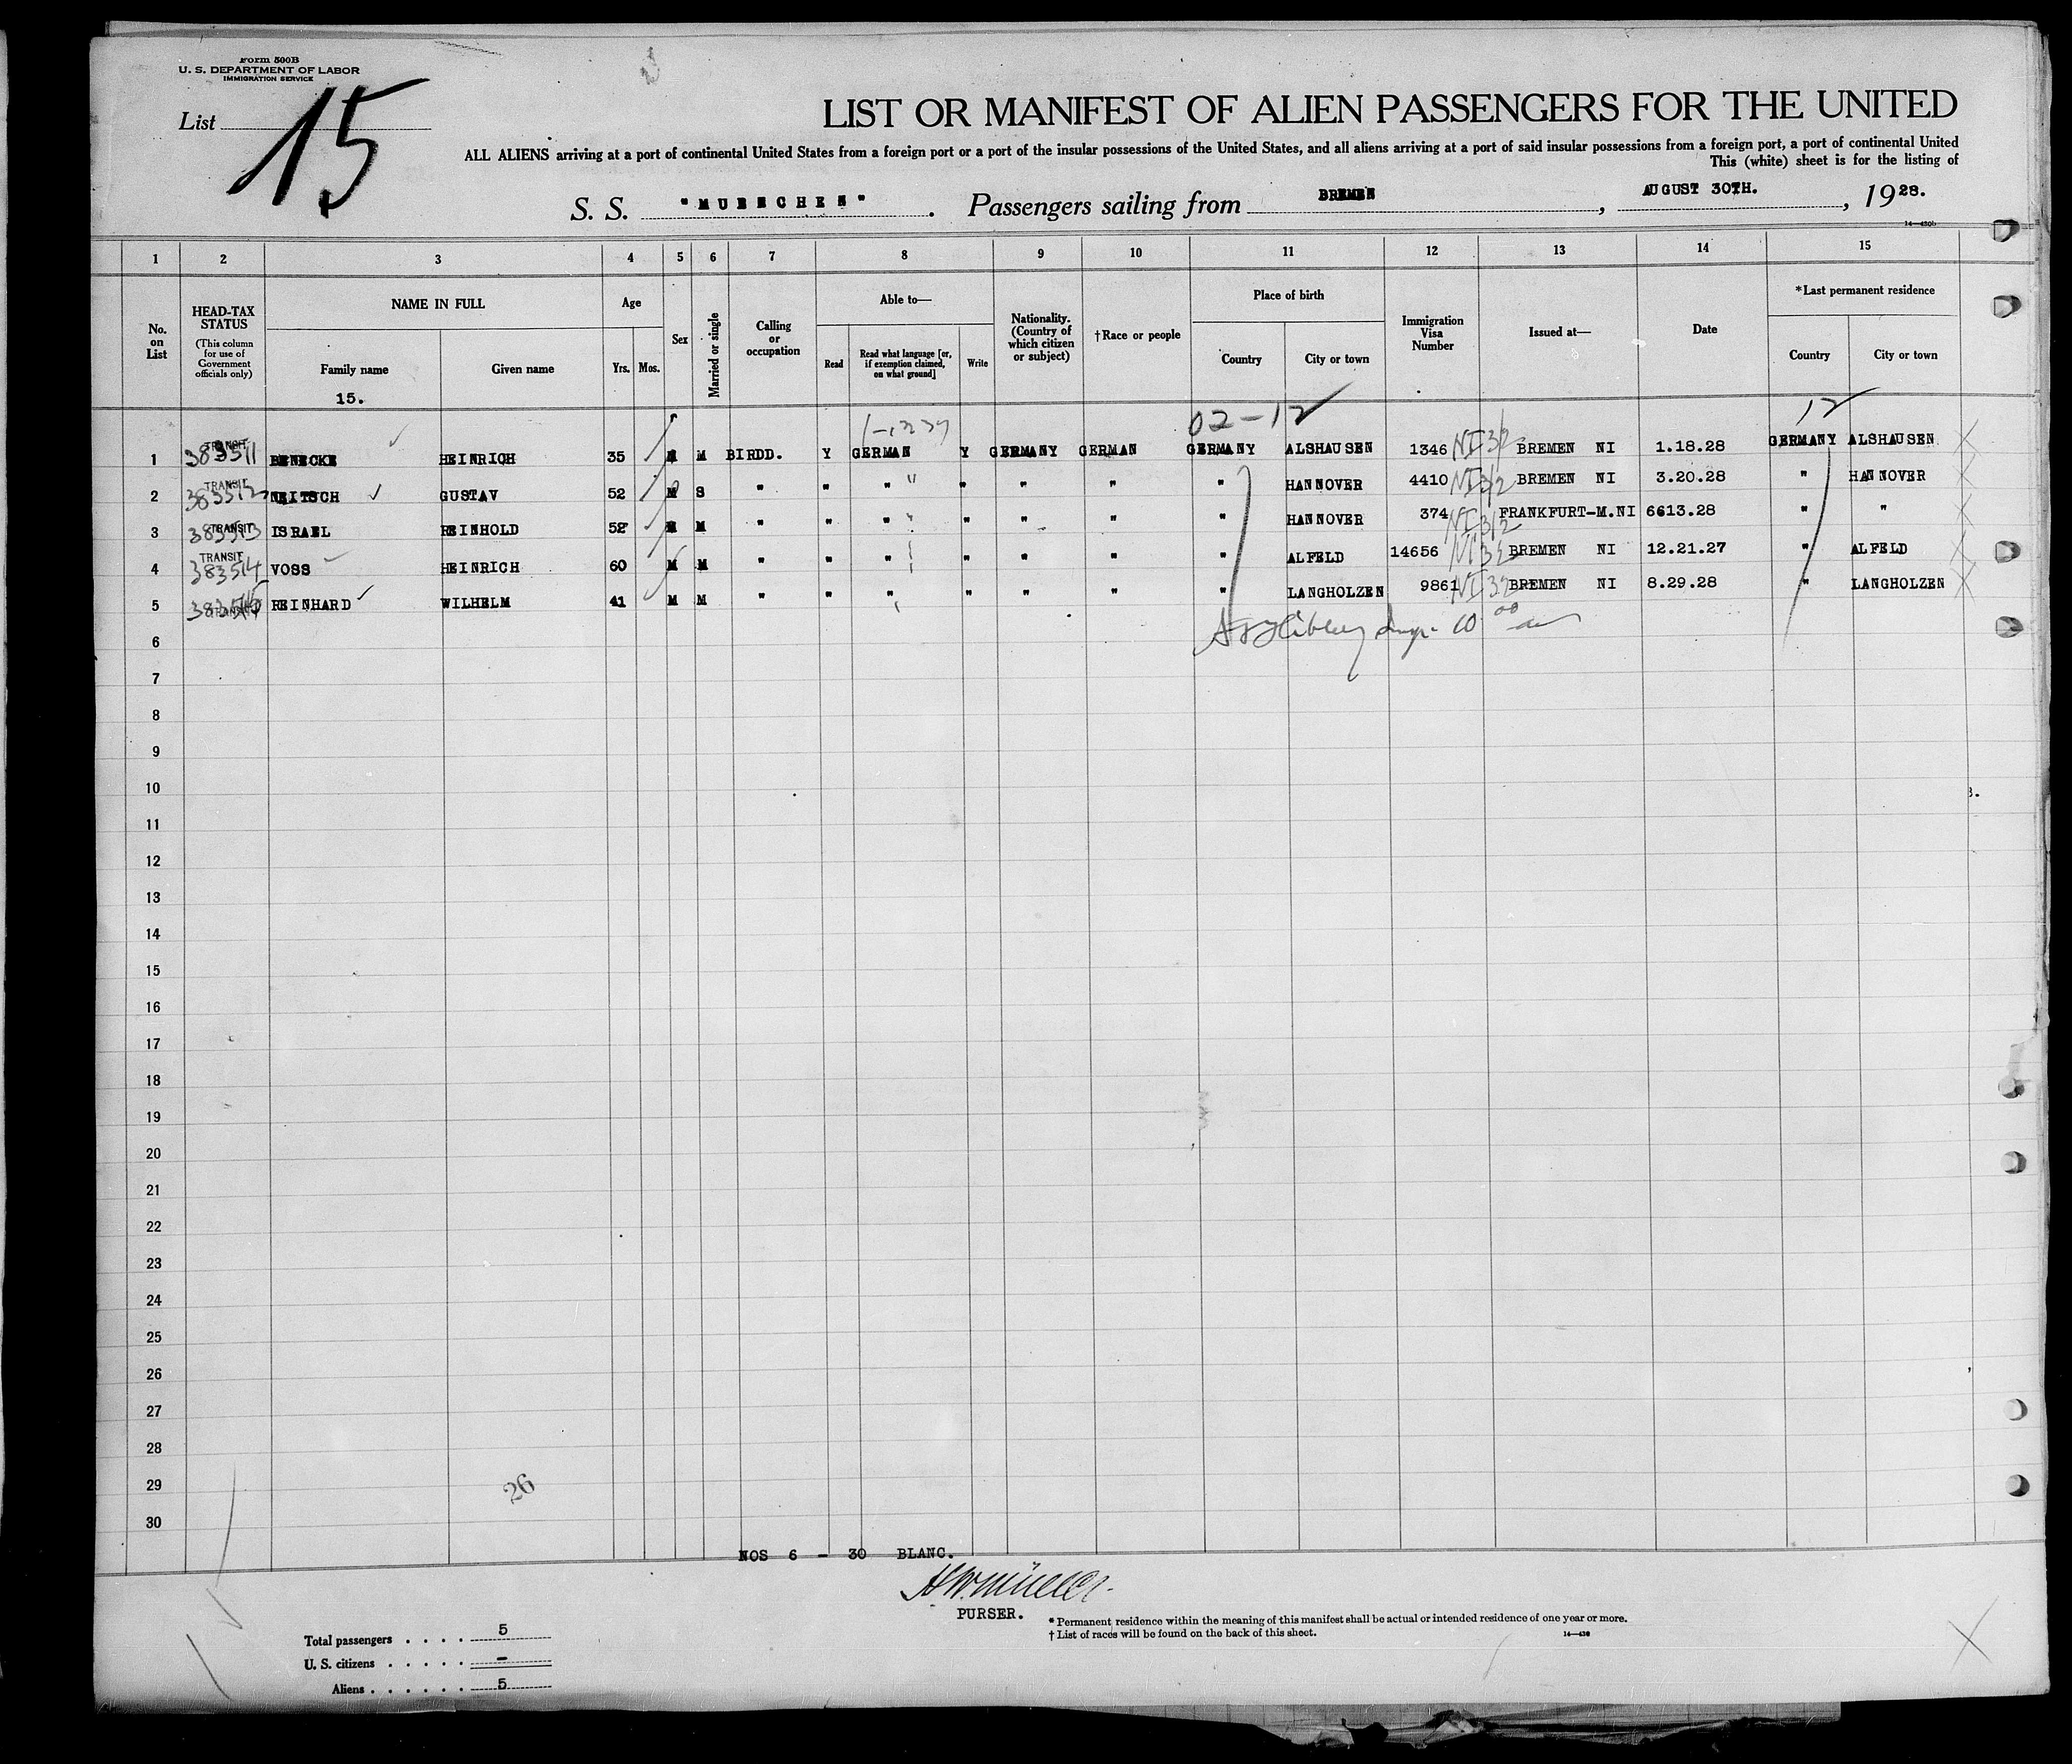 Form 500B
U. S. DEPARTMENT OF LABOR
IMMIGRATION SERVICE
List 15
LIST OR MANIFEST OF ALIEN PASSENGERS FOR THE UNITED
ALL ALIENS arriving at a port of continental United States from a foreign port or a port of the insular possessions of the United States, and all aliens arriving at a port of said insular possessions from a foreign port, a port of continental United
This (white) sheet is for the listing of
S. S. "MUENCHEN". Passengers sailing from BREMEN, AUGUST 30TH., 1928.
14—430b
1 2 3 4 5 6 7 8 9 10 11 12 13 14 15
No. on List
HEAD-TAX STATUS
(This column for use of Government officials only)
NAME IN FULL
Family name
Given name
15.
Age
Yrs. Mos.
Sex
Married or single
Calling or occupation
Able to—
Read
Read what language [or, if exemption claimed, on what ground]
Write
Nationality. (Country of which citizen or subject)
†Race or people
Place of birth
Country
City or town
Immigration Visa Number
Issued at—
Date
*Last permanent residence
Country
City or town
02-12 12
1 TRANSIT 383511 BENECKE HEINRICH 35 M M BIRDD. Y GERMAN Y GERMANY GERMAN GERMANY ALSHAUSEN 1346 NI 3/2 BREMEN NI 1.18.28 GERMANY ALSHAUSEN
2 TRANSIT 383512 NEITSCH GUSTAV 52 M S " " " " " " " HANNOVER 4410 NI 3/2 BREMEN NI 3.20.28 " HANNOVER
3 TRANSIT 383513 ISRAEL REINHOLD 52 M M " " " " " " " HANNOVER 374 NI 3/2 FRANKFURT-M.NI 6613.28 " "
4 TRANSIT 383514 VOSS HEINRICH 60 M M " " " " " " " ALFELD 14656 NI 3/2 BREMEN NI 12.21.27 " ALFELD
5 TRANSIT 383515 REINHARD WILHELM 41 M M " " " " " " " LANGHOLZEN 9861 NI 32 BREMEN NI 8.29.28 " LANGHOLZEN
6
7
8
9
10
11
12
13
14
15
16
17
18
19
20
21
22
23
24
25
26
27
28
29
30
26
NOS 6 - 30 BLANC.
H.W. Müller.
PURSER.
*Permanent residence within the meaning of this manifest shall be actual or intended residence of one year or more.
†List of races will be found on the back of this sheet.
14—430
Total passengers . . . . 5
U. S. citizens . . . . . -
Aliens . . . . . . 5